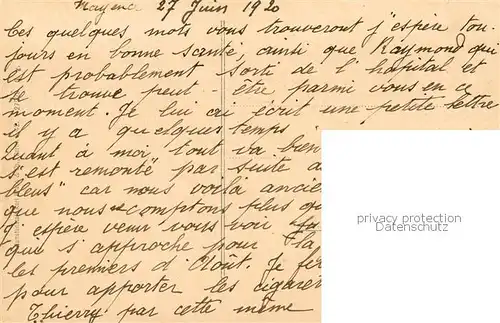 Mayence 27 Juin 1920
Ces quelques mots vous trouveront j'espère tou-
jours en bonne santé ainsi que Raymond qui
est probablement sorti de l'hôpital et
se trouve peut-être parmi vous en ce
moment. Je lui ai écrit une petite lettre
il y a quelques temps
Quant à moi, tout va bien
s'est remonté par suite
bleus" car nous voilà ancien
que nous comptons plus
J'espère venir vous voir
qui s'approche pour
les premiers d'Août. Je
pour apporter les cigaret
Thierry par cette même
privacy protection
Datenschutz